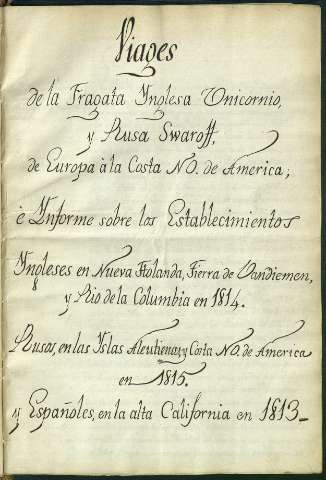 Viages
de la Fragata Ynglesa Unicornio,
y Rusa Swaroff,
de Europa à la Costa NO. de America;
è Ynforme sobre los Establecimientos
Yngleses en Nueva Holanda, Tierra de Vandiemen,
y Rio de la Columbia en 1814.
Rusos, en las Yslas Aleutienas y Costa NO. de America
en 1815.
y Españoles, en la alta California en 1813_